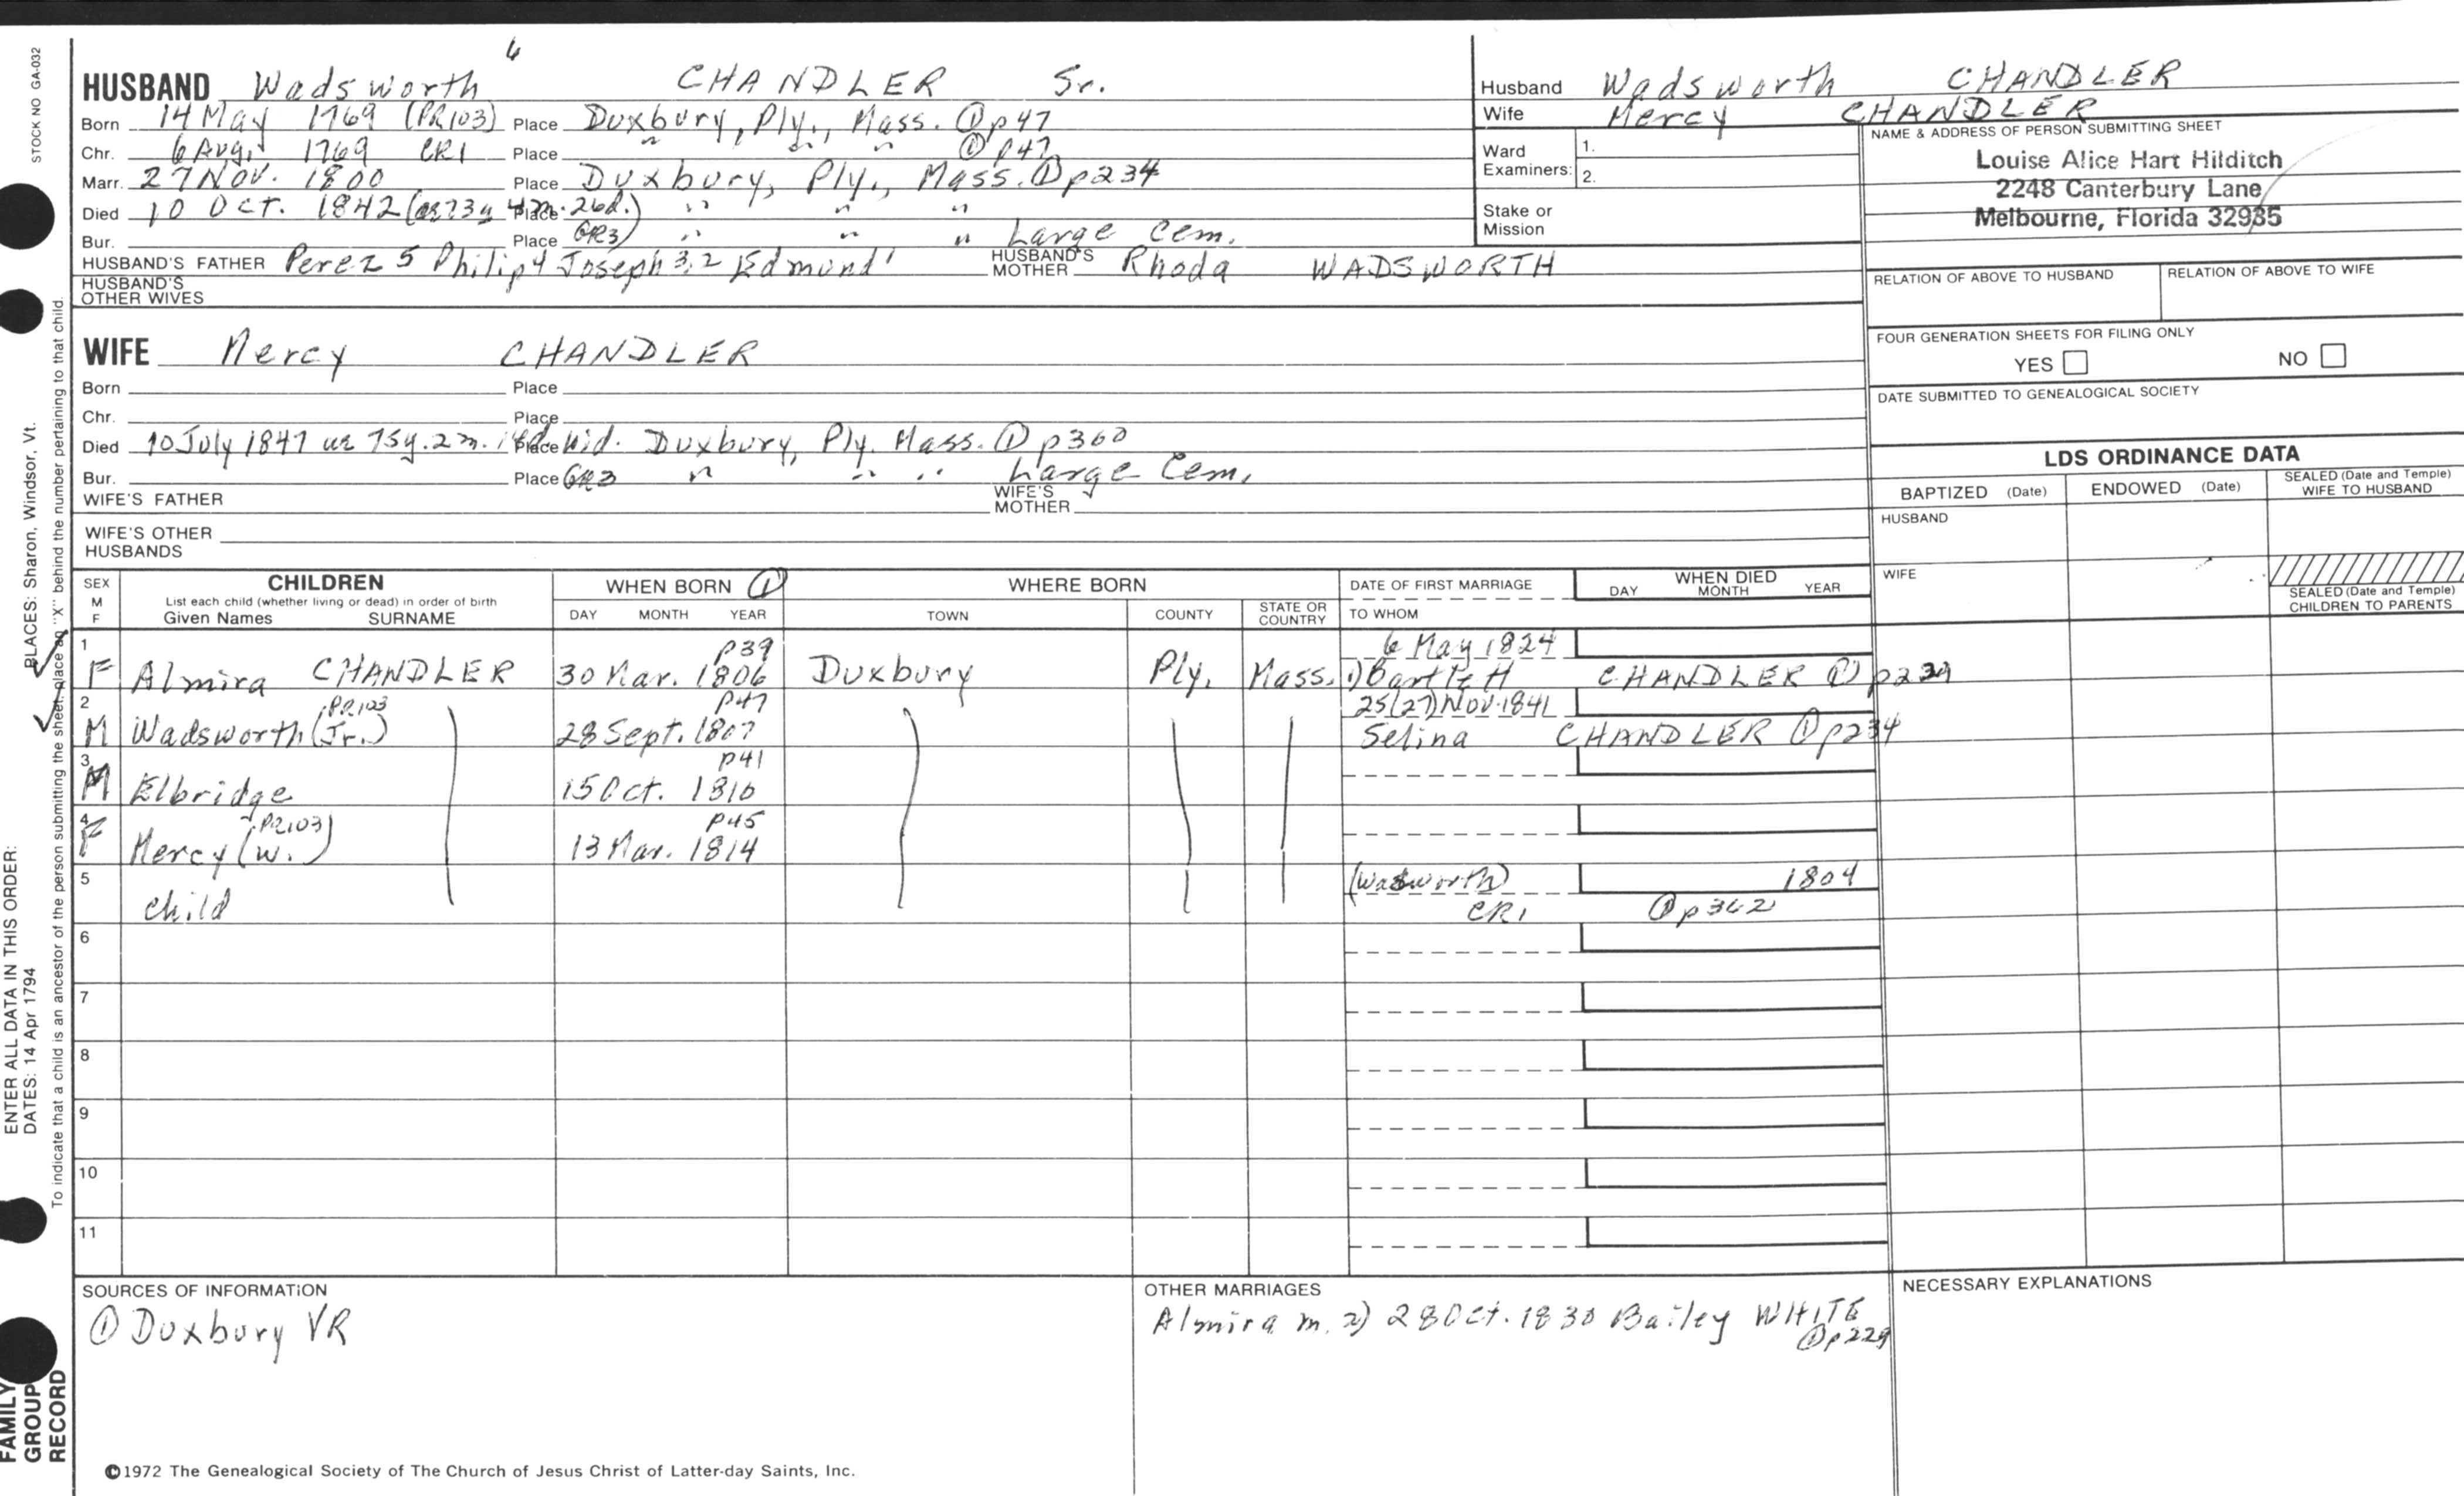 STOCK NO GA-032
HUSBAND Wadsworth 6 CHANDLER Sr.
Born 14 May 1769 (PR103) Place Duxbury, Ply., Mass. ① p47
Chr. 6 Aug. 1769 CR1 Place " " " ① p47
Marr. 27 Nov. 1800 Place Duxbury, Ply., Mass. ① p234
Died 10 Oct. 1842 (ae 73y 4m. 26d.) Place " " "
Bur. Place GR3) " " " Large Cem.
HUSBAND'S FATHER Perez 5 Philip 4 Joseph 3,2 Edmund 1 HUSBAND'S MOTHER Rhoda WADSWORTH
HUSBAND'S OTHER WIVES
WIFE Mercy CHANDLER
Born Place
Chr. Place
Died 10 July 1847 ae 75y. 2m. 14d. Place Wid. Duxbury, Ply. Mass. ① p360
Bur. Place GR3 " " " Large Cem.
WIFE'S FATHER WIFE'S MOTHER
WIFE'S OTHER HUSBANDS
Husband Wadsworth CHANDLER
Wife Mercy CHANDLER
Ward Examiners: 1.
2.
Stake or Mission
NAME & ADDRESS OF PERSON SUBMITTING SHEET
Louise Alice Hart Hilditch
2248 Canterbury Lane
Melbourne, Florida 32935
RELATION OF ABOVE TO HUSBAND RELATION OF ABOVE TO WIFE
FOUR GENERATION SHEETS FOR FILING ONLY
YES NO
DATE SUBMITTED TO GENEALOGICAL SOCIETY
LDS ORDINANCE DATA
BAPTIZED (Date) ENDOWED (Date) SEALED (Date and Temple) WIFE TO HUSBAND
HUSBAND
WIFE
SEALED (Date and Temple) CHILDREN TO PARENTS
SEX M F CHILDREN WHEN BORN ① WHERE BORN DATE OF FIRST MARRIAGE WHEN DIED
List each child (whether living or dead) in order of birth
Given Names SURNAME DAY MONTH YEAR TOWN COUNTY STATE OR COUNTRY TO WHOM DAY MONTH YEAR
1 p39 6 May 1824
F Almira CHANDLER 30 Mar. 1806 Duxbury Ply. Mass. 1) Bartlett CHANDLER ① p229
2 PR103 p47 25(27) Nov. 1841
M Wadsworth (Jr.) 28 Sept. 1807 Selina CHANDLER ① p234
3 p41
M Elbridge 15 Oct. 1810
4 PR103 p45
F Mercy (W.) 13 Mar. 1814
5 (Wadsworth) 1804
child CR1 ① p362
6
7
8
9
10
11
SOURCES OF INFORMATION
① Duxbury VR
OTHER MARRIAGES
Almira m. 2) 28 Oct. 1830 Bailey WHITE
① p229
NECESSARY EXPLANATIONS
©1972 The Genealogical Society of The Church of Jesus Christ of Latter-day Saints, Inc.
FAMILY GROUP RECORD
ENTER ALL DATA IN THIS ORDER:
DATES: 14 Apr 1794
PLACES: Sharon, Windsor, Vt.
To indicate that a child is an ancestor of the person submitting the sheet, place an "X" behind the number pertaining to that child.